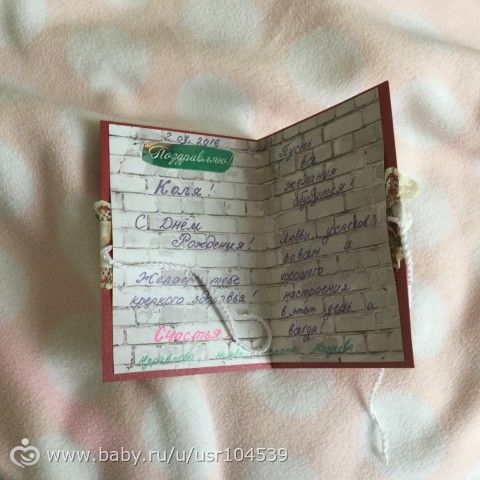 2.07.2016
Поздравляю!
Коля!
С Днём
Рождения!
Желаем тебе
крепкого здоровья!
Счастья
Пусть
все
желания
сбудутся!
Любви, успехов,
и
хорошего
настроения
в этот день и
всегда!
www.baby.ru/u/usr104539